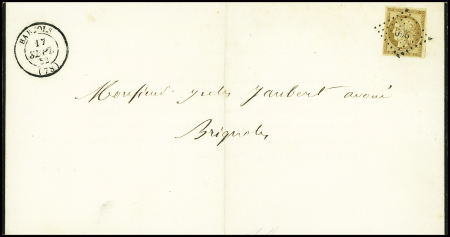 BARJOLS
17
SEPT.
52
(78)
Monsieur Jules Jaubert avoué
Brignoles